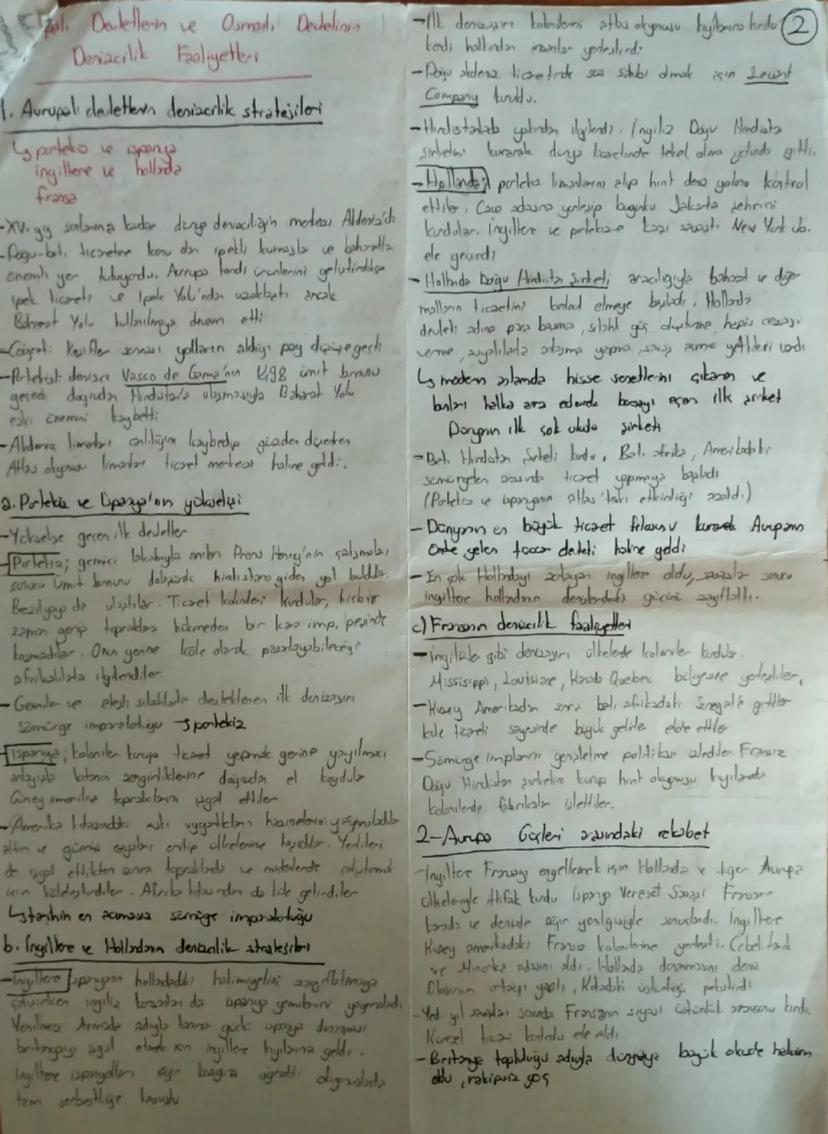 Devletlerin ve Osmanlı Devletinin
Denizcilik Faaliyetleri
1. Avrupalı devletlerin denizcilik stratejileri
↳ portekiz ve ispanya
ingiltere ve hollada
fransa
-XV. yy sonlarına kadar dünya denizciliğin merkezi Akdeniz'di
-Doğu-batı ticaretine konu olan ipekli kumaşla ve baharatla
önemli yer tutuyordu. Avrupa kendi ürünlerini geliştirdikçe
ipek ticareti ve İpek Yolu'ndan uzaklaştı ancak
Baharat Yolu kullanılmaya devam etti
-Coğrafi Keşifler sonrası yolların aldığı pay düşüşe geçti
-Portekizli denizci Vasco de Gama'nın 1498 ümit burnunu
geçerek doğrudan Hindistan'a ulaşmasıyla Baharat Yolu
eski önemini kaybetti
-Akdeniz limanları canlılığını kaybedip gözden düşerken
Atlas okyanusu limanları ticaret merkezi haline geldi.
a. Portekiz ve İspanya'nın yükselişi
-Yükselişe geçen ilk devletler
-Portekiz; gemici lakabıyla anılan Prens Henry'nin çalışmaları
sonucu Ümit burnunu dolaşarak hindistana giden yol buldular.
Brezilyaya da ulaştılar. Ticaret kolonileri kurdular, hiçbir
zaman geniş topraklara hükmeden bir kara imp. peşinde
koşmadılar. Onun yerine köle olarak pazarlayabileceği
afrikalılarla ilgilendiler.
-Gemiler ve ateşli silahlarla desteklenen ilk denizaşırı
sömürge imparatorluğu → portekiz
-İspanya; koloniler kurup ticaret yapmak yerine yayılmacı
anlayışla kıtanın zenginliklerine doğrudan el koydular
Güney amerika topraklarını işgal ettiler
-Amerika kıtasındaki eski uygarlıkların hazinelerini yağmaladılar
altın ve gümüş eşyaları eritip ülkelerine taşıdılar. Yerlileri
de işgal ettikten sonra topraklarda ve madenlerde çalıştırmak
için köleleştirdiler. Afrika kıtasından da köle getirdiler
↳tarihin en acımasız sömürge imparatorluğu
b. İngiltere ve Hollandanın denizcilik stratejileri
-İngiltere ispanyanın hollandadaki hakimiyetini zayıflatmaya
çalışırken ingiliz korsanları da ispanya gemilerini yağmaladı.
Yenilmez Armada adıyla tanınan güçlü ispanya donanması
britanyayı işgal etmek için ingiltere kıyılarına geldi.
İngiltere ispanyolları ağır bozguna uğrattı okyanuslarda
tam serbestliğe kavuştu
2
-İlk denizaşırı kolonilerini atlas okyanusu kıyılarına kurdu
kendi halkından insanlar yerleştirdi.
-Doğu akdeniz ticaretinde söz sahibi olmak için Levant
Company kurdu.
-Hindistanla yakından ilgilendi. İngiliz Doğu Hindistan
şirketini kurarak dünya ticaretinde tekel olma yolunda gitti.
-Hollanda; portekiz limanlarını alıp hint deniz yolunu kontrol
ettiler. Cava adasına yerleşip bugünkü Jakarta şehrini
kurdular. İngiltere ve portekize karşı savaştı New York'u
ele geçirdi
-Hollanda Doğu Hindistan Şirketi aracılığıyla baharat ve diğer
malların ticaretini kontrol etmeye başladı. Hollanda
devleti adına para basma, silahlı güç oluşturma, hapis cezası
verme, arayalılarla anlaşma yapma, savaş açma yetkileri vardı
↳ modern anlamda hisse senetlerini çıkaran ve
bunları halka arz ederek borsayı açan ilk şirket
Dünyanın ilk çok uluslu şirketi
-Batı Hindistan Şirketi kurdu, Batı afrika, Amerikadaki
sömürgeleri arasında ticaret yapmaya başladı
(Portekiz ve ispanyanın atlas'taki etkinliği azaldı.)
-Dünyanın en büyük ticaret filosunu kurarak Avrupanın
önde gelen tüccar devleti haline geldi
-En çok Hollandayı zorlayan ingiltere oldu, savaşlar sonucu
ingiltere hollandanın denizlerdeki gücünü zayıflattı.
c) Fransanın denizcilik faaliyetleri
-İngiltere gibi denizaşırı ülkelerde koloniler kurdular.
Mississippi, Louisiana, Kanada Quebec bölgesine yerleştiler.
-Kuzey Amerikadan sonra batı afrikadaki Senegal'e gittiler
köle ticareti sayesinde büyük gelirler elde ettiler
-Sömürge implarını genişletme politikası izlediler. Fransız
Doğu Hindistan şirketini kurup hint okyanusu kıyılarında
kolonilerde fabrikalar işlettiler.
2-Avrupa Güçleri arasındaki rekabet
-İngiltere Fransayı engellemek için Hollanda ve diğer Avrupa
ülkeleriyle ittifak kurdu İspanya Veraset Savaşı Fransanın
karada ve denizde ağır yenilgisiyle sonuçlandı. İngiltere
Kuzey amerikadaki Fransız kolonilerine yerleşti. Cebelitarık
ve Minorka adasını aldı. Hollanda donanmasını deniz
filosunun ortağı yaptı, Kıtadaki üstünlüğü pekiştirdi
-Yedi yıl savaşları sonunda Fransanın siyasi üstünlük arzusunu kırdı.
Küresel ticari kontrolü ele aldı.
-Britanya topluluğu adıyla dünyaya büyük ölçüde hakim
oldu, rakipsiz güç